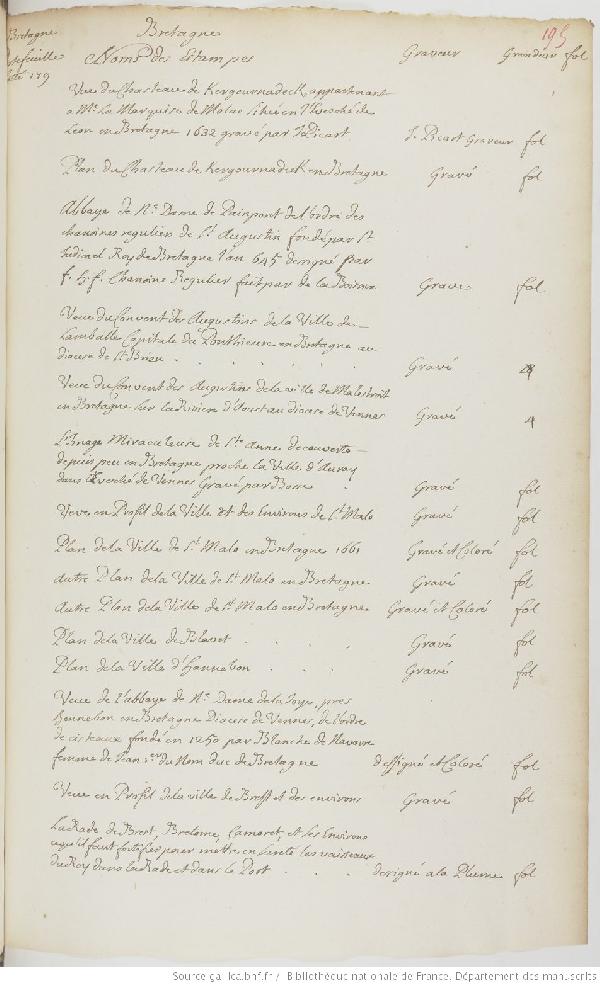 Bretagne
Bretagne
195
Noms des Estampes Graveur Grandeur fol
179
Veue du Chasteau de Kergournadeck appartenant
a Mr. La Marquise de Molac scitué en l'Evesché de
Leon en Bretagne 1632 gravé par J. Picart J. Picart Graveur fol
Plan du Chasteau de Kergournadeck en Bretagne Gravé fol
Abbaye de Ne. Dame de Painpont de l'ordre des
chanoines reguliers de St. Augustin fondé par St.
Judicael Roy de Bretagne l'an 645 designé par
f. h. f. Chanoine Regulier fait par de la Boissiere Gravé fol
Veue du Convent des Augustins de la Ville de
Lamballe Capitale du Ponthieure en Bretagne au
diocese de St. Brieu . . . . . Gravé 4
Veue du Convent des Augustins de la ville de Malestroit
en Bretagne sur la Riviere d'Oust au diocese de Vennes Gravé 4
L'Image Miraculeuse de Ste. Anne decouverte
depuis peu en Bretagne proche la Ville d'Auray
dans l'Eveché de Vennes Gravé par Bosse . Gravé fol
Veue en Profil de la Ville et des Environs de St. Malo Gravé fol
Plan de la Ville de St. Malo en Bretagne 1661 Gravé et Coloré fol
Autre Plan de la Ville de St. Malo en Bretagne Gravé fol
Autre Plan de la Ville de St. Malo en Bretagne Gravé et Coloré fol
Plan de la Ville de Blavet . . . Gravé fol
Plan de la Ville d'Hannebon . . . Gravé fol
Veue de l'abbaye de Ne. Dame de la Joye, pres
Hennebon en Bretagne Diocese de Vennes, de l'ordre
de Cisteaux fondé en 1250 par Blanche de Navarre
femme de Jean 1er. du Nom duc de Bretagne dessigné et Coloré fol
Veue en Profil de la ville de Brest et des environs Gravé fol
La Rade de Brest, Bertome, Camaret, et les Environs
qu'il faut fortifier pour mettre en sureté les vaisseaux
du Roy dans la Rade et dans le Port . . . designé a la Plume fol
Source gallica.bnf.fr / Bibliothèque nationale de France. Département des manuscrits